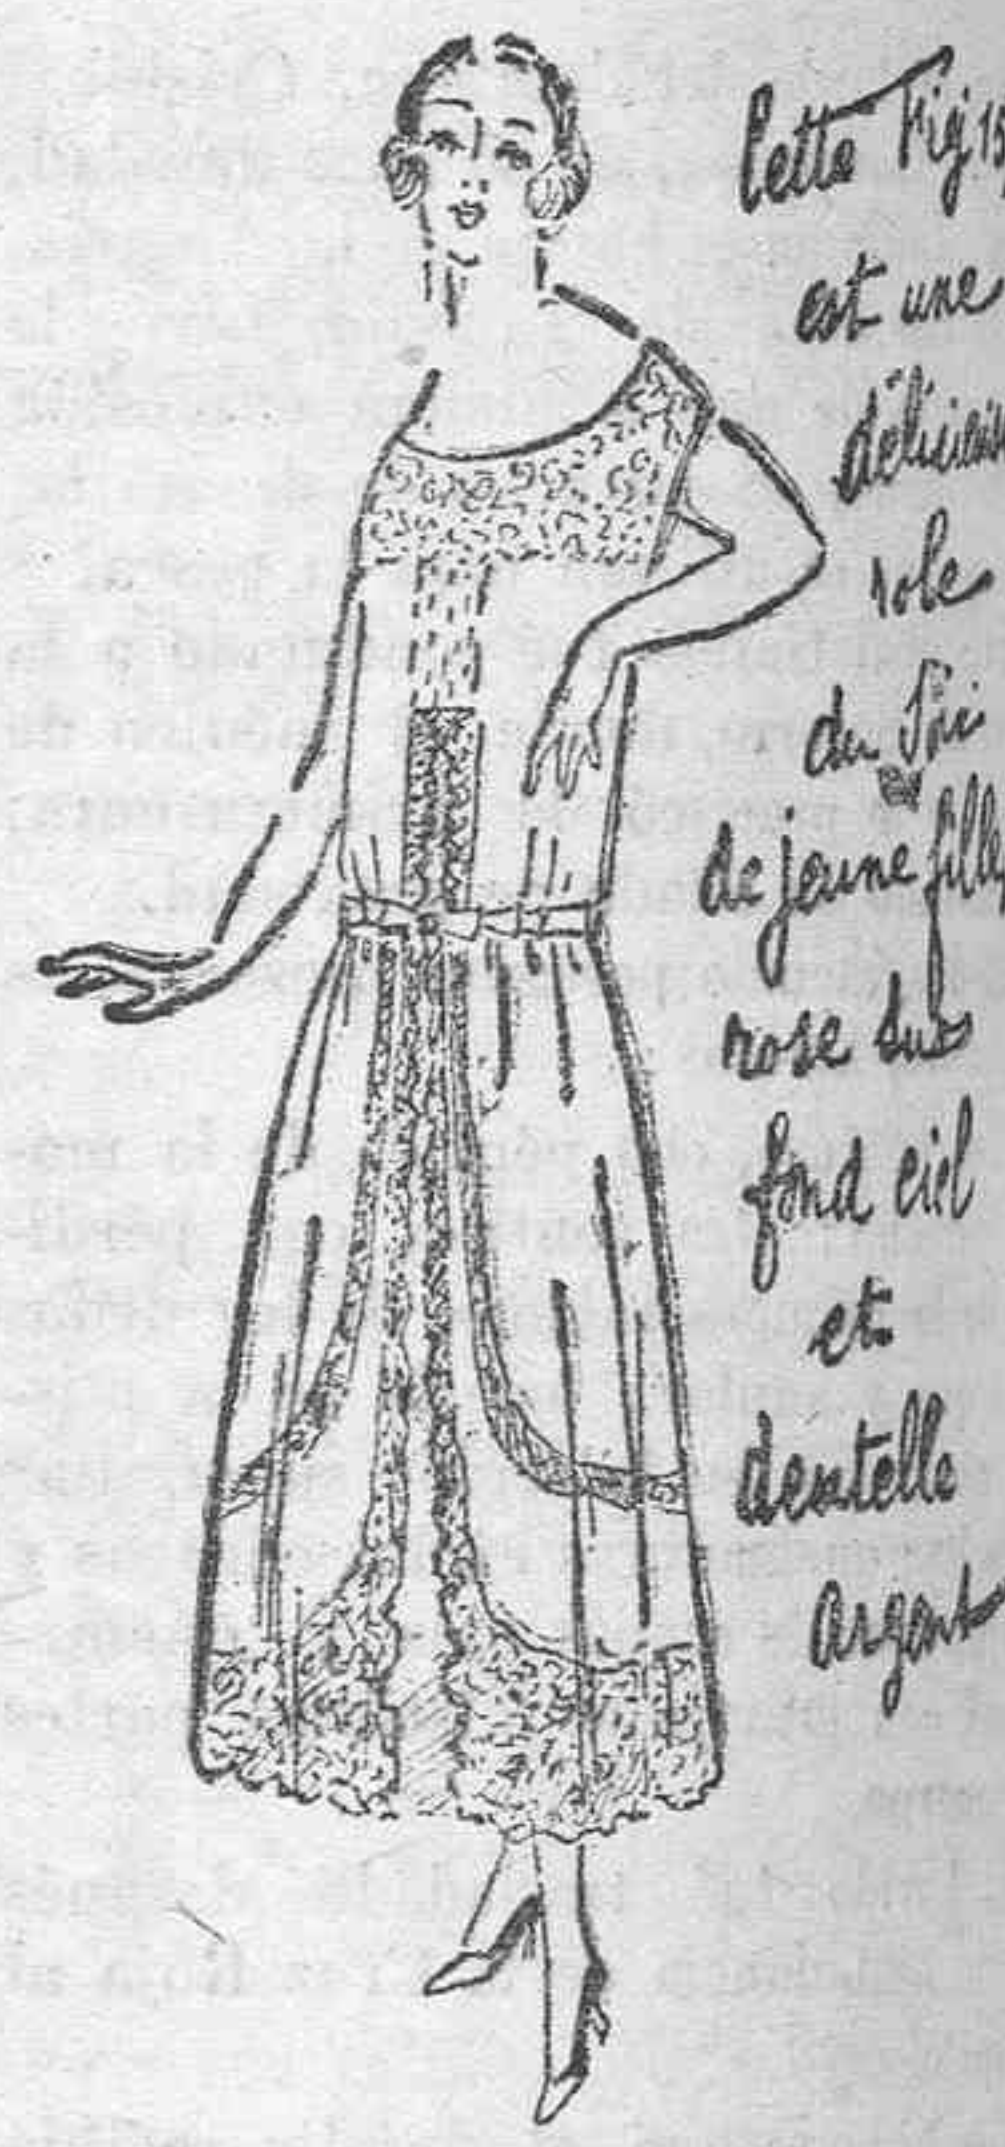 Cette Fig 15
est une
délicieuse
robe
du Soir
de jeune fille
rose sur
fond ciel
et
dentelle
argent